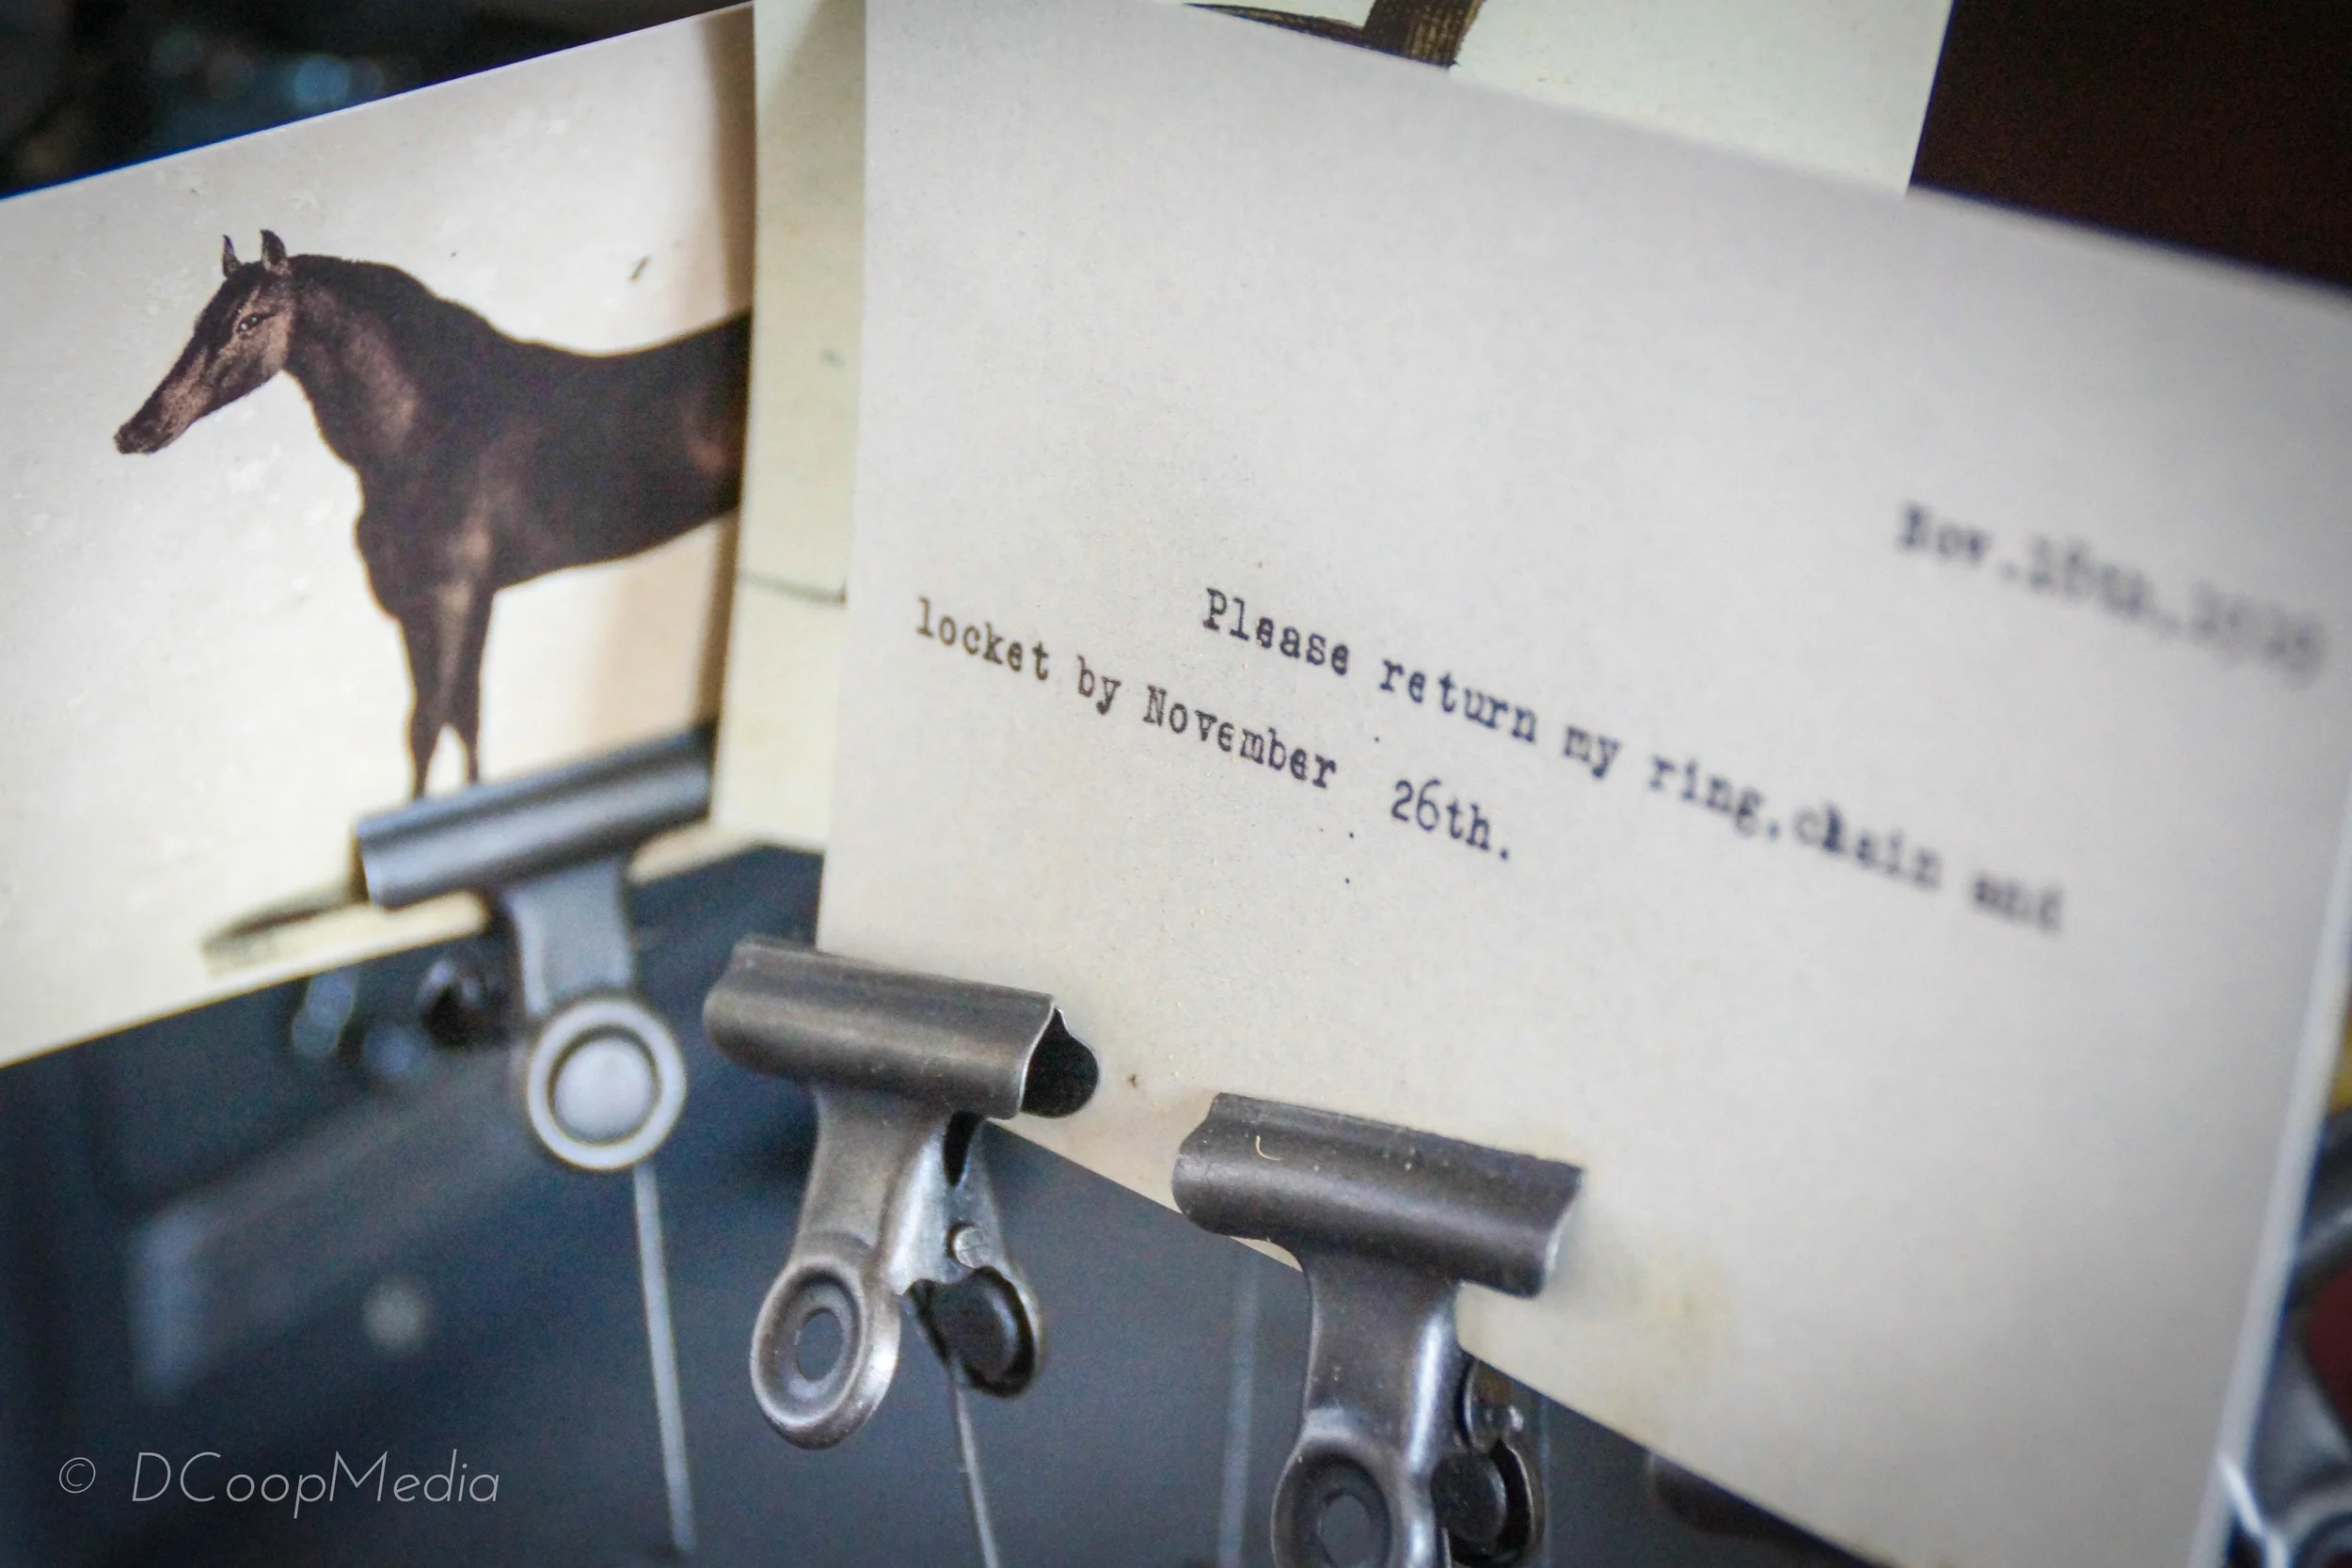 Nov.
Please return my ring,chain and
locket by November 26th.
© DCoopMedia